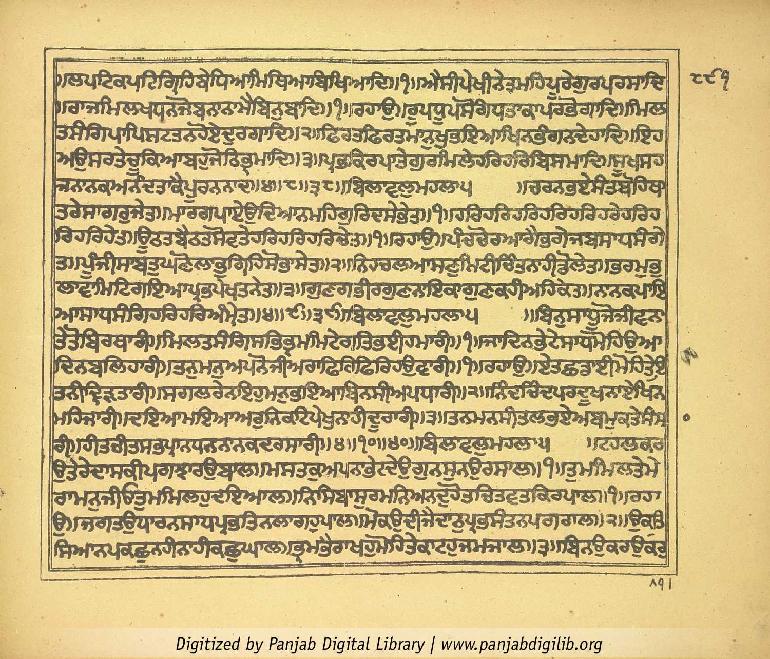 ॥ਲਪਟਿਕਪਟਿਗ੍ਰਿਹਿਬੇਧਿਆਮਿਥਿਆਬਿਖਿਆਦਿ॥੧॥ਐਸੀਪੇਖੀਨੇਤ੍ਰਮਹਿਪੂਰੇਗੁਰਪਰਸਾਦਿ
॥ਰਾਜਮਿਲਖਧਨਜੋਬਨਾਨਾਮੈਬਿਨੁਬਾਦਿ॥੧॥ਰਹਾਉ॥ਰੂਪਧੂਪਸੋਗੰਧਤਾਕਾਪਰਭੋਗਾਦਿ॥ਮਿਲ
ਤਸੰਗਿਪਾਪਿਸਟਤਨਹੋਏਦੁਰਗਾਦਿ॥੨॥ਫਿਰਤਫਿਰਤਮਾਨੁਖੁਭਇਆਖਿਨਭੰਗਨਦੇਹਾਦਿ॥ਇਹ
ਅਉਸਰਤੇਚੂਕਿਆਬਹੁਜੋਨਿਭ੍ਰਮਾਦਿ॥੩॥ਪ੍ਰਭਕਿਰਪਾਤੇਗੁਰਮਿਲੇਹਰਿਹਰਿਬਿਸਮਾਦਿ॥ਸੂਖਸਹ
ਜਨਾਨਕਅਨੰਦਤਾਕੈਪੂਰਨਨਾਦ॥੪॥੮॥੩੮॥ਬਿਲਾਵਲੁਮਹਲਾ੫ ॥ਚਰਨਭਏਸੰਤਬੋਹਿਥਾ
ਤਰੇਸਾਗਰੁਜੇਤ॥ਮਾਰਗਪਾਏਉਦਿਆਨਮਹਿਗੁਰਿਦਸੇਭੇਤ॥੧॥ਹਰਿਹਰਿਹਰਿਹਰਿਹਰਿਹਰੇਹਰਿਹ
ਰਿਹਰਿਹੇਤ॥ਊਠਤਬੈਠਤਸੋਵਤੇਹਰਿਹਰਿਹਰਿਚੇਤ॥੧॥ਰਹਾਉ॥ਪੰਚਚੋਰਆਗੈਭਗੇਜਬਸਾਧਸੰਗੇ
ਤ॥ਪੂੰਜੀਸਾਬਤੁਘਣੋਲਾਭੁਗ੍ਰਿਹਿਸੋਭਾਸੇਤ॥੨॥ਨਿਹਚਲਆਸਣੁਮਿਟੀਚਿੰਤਨਾਹੀਡੋਲੇਤ॥ਭਰਮੁਭੁ
ਲਾਵਾਮਿਟਿਗਇਆਪ੍ਰਭਪੇਖਤਨੇਤ॥੩॥ਗੁਣਗਭੀਰਗੁਣਨਾਇਕਾਗੁਣਕਹੀਅਹਿਕੇਤ॥ਨਾਨਕਪਾਇ
ਆਸਾਧਸੰਗਿਹਰਿਹਰਿਅੰਮ੍ਰੇਤ॥੪॥੯॥੩੯॥ਬਿਲਾਵਲੁਮਹਲਾ੫ ॥ਬਿਨੁਸਾਧੂਜੋਜੀਵਨਾ
ਤੇਤੋਬਿਰਥਾਰੀ॥ਮਿਲਤਸੰਗਿਸਭਿਭ੍ਰਮਮਿਟੇਗਤਿਭਈਹਮਾਰੀ॥੧॥ਜਾਦਿਨਭੇਟੇਸਾਧਮੋਹਿਉਆ
ਦਿਨਬਲਿਹਾਰੀ॥ਤਨੁਮਨੁਅਪਨੋਜੀਅਰਾਫਿਰਿਫਿਰਿਹਉਵਾਰੀ॥੧॥ਰਹਾਉ॥ਏਤਛਡਾਈਮੋਹਿਤੇਇ
ਤਨੀਦ੍ਰਿੜਤਾਰੀ॥ਸਗਲਰੇਨਇਹੁਮਨੁਭਇਆਬਿਨਸੀਅਪਧਾਰੀ॥੨॥ਨਿੰਦਚਿੰਦਪਰਦੂਖਨਾਏਖਿਨ
ਮਹਿਜਾਰੀ॥ਦਇਆਮਇਆਅਰੁਨਿਕਟਿਪੇਖੁਨਾਹੀਦੂਰਾਰੀ॥੩॥ਤਨਮਨਸੀਤਲਭਏਅਬਮੁਕਤੇਸੰਸਾ
ਰੀ॥ਹੀਤਚੀਤਸਭਪ੍ਰਾਨਧਨਨਾਨਕਦਰਸਾਰੀ॥੪॥੧੦॥੪੦॥ਬਿਲਾਵਲੁਮਹਲਾ੫ ॥ਟਹਲਕਰ
ਉਤੇਰੇਦਾਸਕੀਪਗਝਾਰਉਬਾਲ॥ਮਸਤਕੁਅਪਨਾਭੇਟਦੇਉਗੁਨਸੁਨਉਰਸਾਲ॥੧॥ਤੁਮਮਿਲਤੇਮੇ
ਰਾਮਨੁਜੀਓਤੁਮਮਿਲਹੁਦਇਆਲ॥ਨਿਸਿਬਾਸੁਰਮਨਿਅਨਦੁਹੋਤਚਿਤਵਤਕਿਰਪਾਲ॥੧॥ਰਹਾ
ਉ॥ਜਗਤਉਧਾਰਨਸਾਧਪ੍ਰਭਤਿਨਲਾਗਹੁਪਾਲ॥ਮੋਕਉਦੀਜੈਦਾਨੁਪ੍ਰਭਸੰਤਨਪਗਰਾਲ॥੨॥ਉਕਤਿ
ਸਿਆਨਪਕਛੁਨਹੀਨਾਹੀਕਛੁਘਾਲ॥ਭ੍ਰਮਭੈਰਾਖਹੁਮੋਹਤੇਕਾਟਹੁਜਮਜਾਲ॥੩॥ਬਿਨਉਕਰਉਕਰੁ
Digitized by Panjab Digital Library | www.panjabdigilib.org